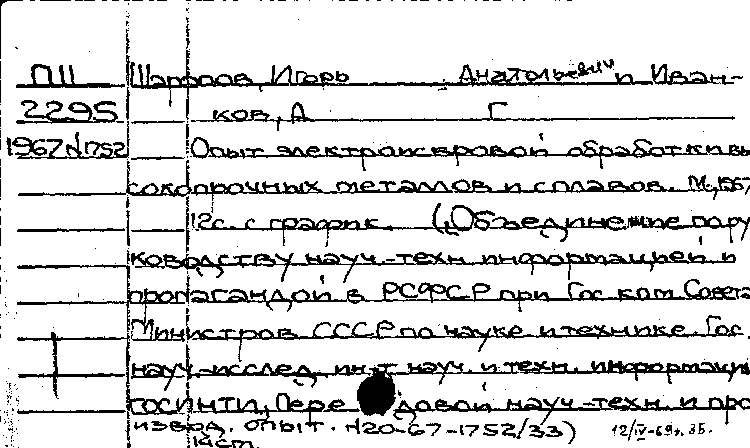 ПП Шарапов, Игорь Анатольевич и Иван-
2295 ков, А Г
1967 N1752 Опыт электроискровой обработки вы
сокопрочных металлов и сплавов. М, 1967
12с. с график. („Объединение по ру
ководству науч.-техн. информацией и
пропагандой в РСФСР при Гос ком Совета
Министров СССР по науке и технике. Гос
науч.-исслед. ин-т науч. и техн. информации
ГОСИНТИ, Передовой науч-техн. и про
извод. опыт. N20-67-1752/33)
12/IV-69г.